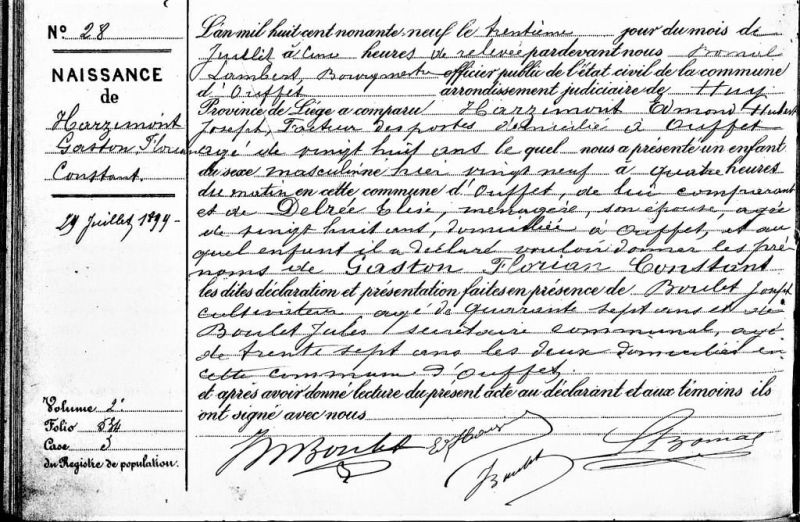 N° 28
NAISSANCE
de
Harzimont
Gaston, Florian
Constant.
29 Juillet 1899
Volume 2
Folio 534
Case 5
du Registre de population.
L'an mil huit cent nonante neuf le trentième jour du mois de
Juillet à cinq heures de relevée pardevant nous
Lambert, Bourgmestre officier public de l'état civil de la commune
d'Ouffet arrondissement judiciaire de Huy
Province de Liége a comparu Harzimont Edmond Hubert
Joseph, Facteur des postes domicilié à Ouffet
agé de vingt huit ans le quel nous a présenté un enfant
du sexe masculin né hier vingt neuf à quatre heures
du matin en cette commune d'Ouffet, de lui comparant
et de Delrée Elise, menagère, son épouse, agée
de vingt huit ans, domiciliée à Ouffet, et au
quel enfant il a déclaré vouloir donner les pré
noms de Gaston Florian Constant
les dites déclaration et présentation faites en présence de Boulet Joseph
cultivateur, agé de quarante sept ans et de
Boulet Jules secrétaire communal, agé
de trente sept ans les deux domiciliés en
cette commune d'Ouffet
et après avoir donné lecture du présent acte au déclarant et aux témoins ils
ont signé avec nous
Boulet
J Boulet